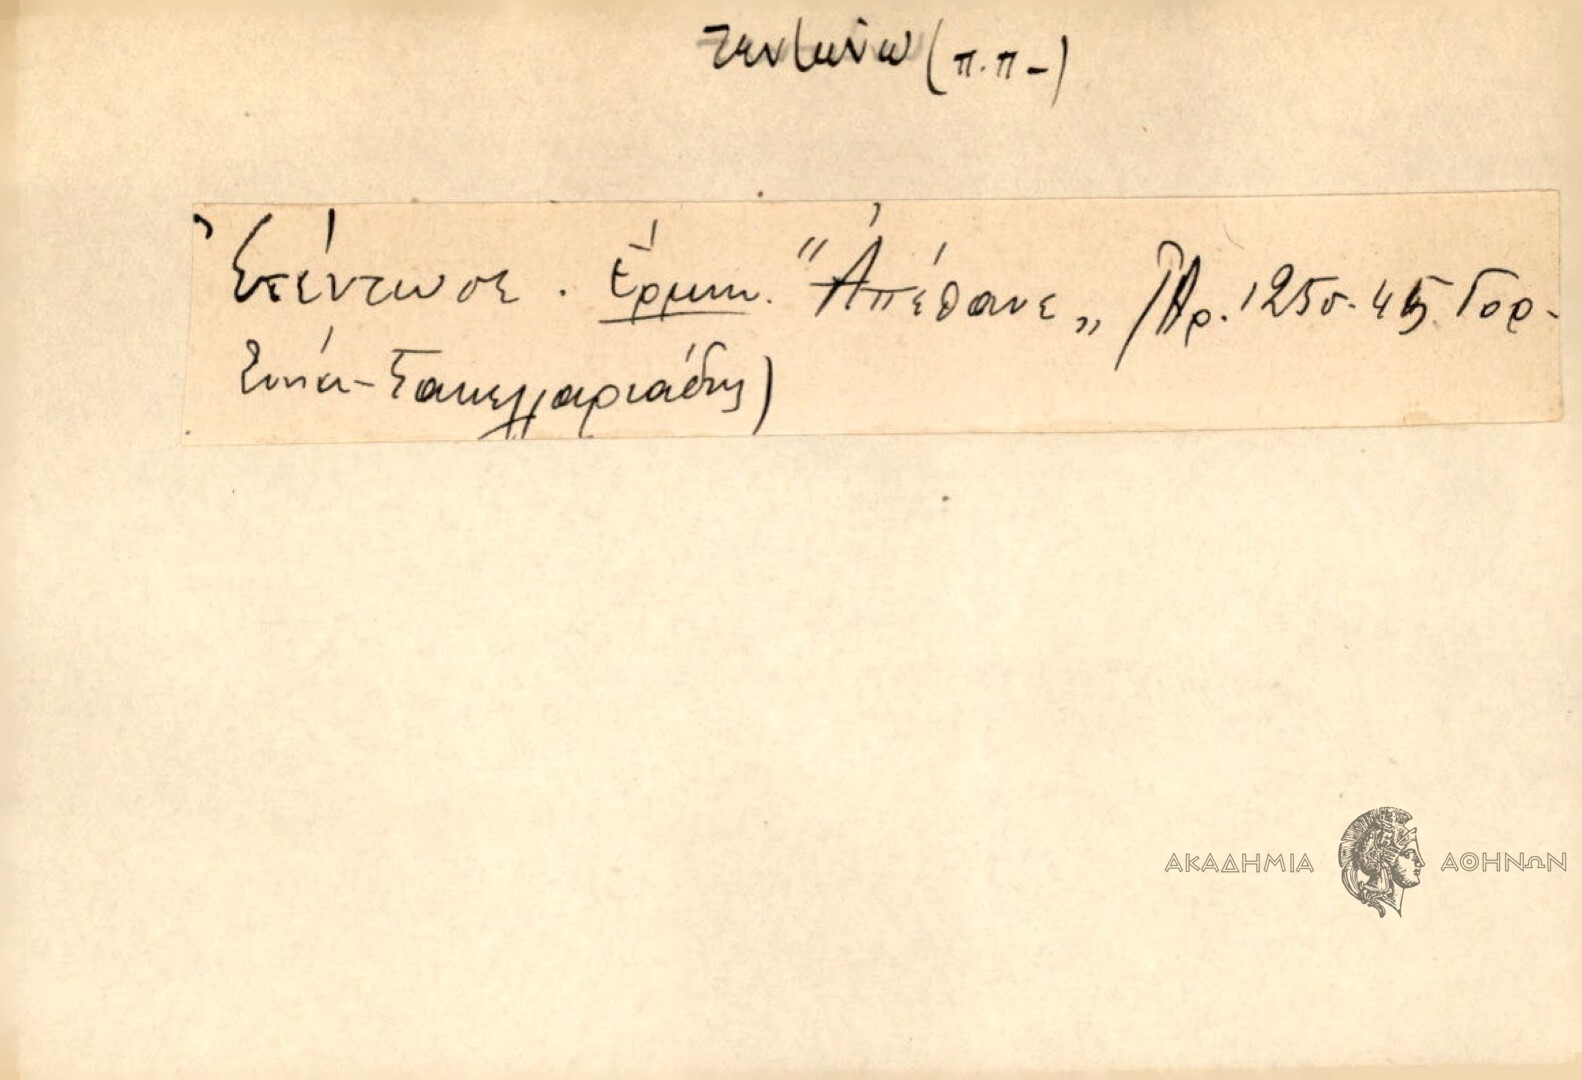 τεντώνω (π.π-)
Ἐτέντωσε. Ἑρμην. "Ἀπέθανε„ (Ἀρ. 125 σ. 45 Γορ-
Σακελλαριάδης)
ΑΚΑΔΗΜΙΑ ΑΘΗΝΩΝ